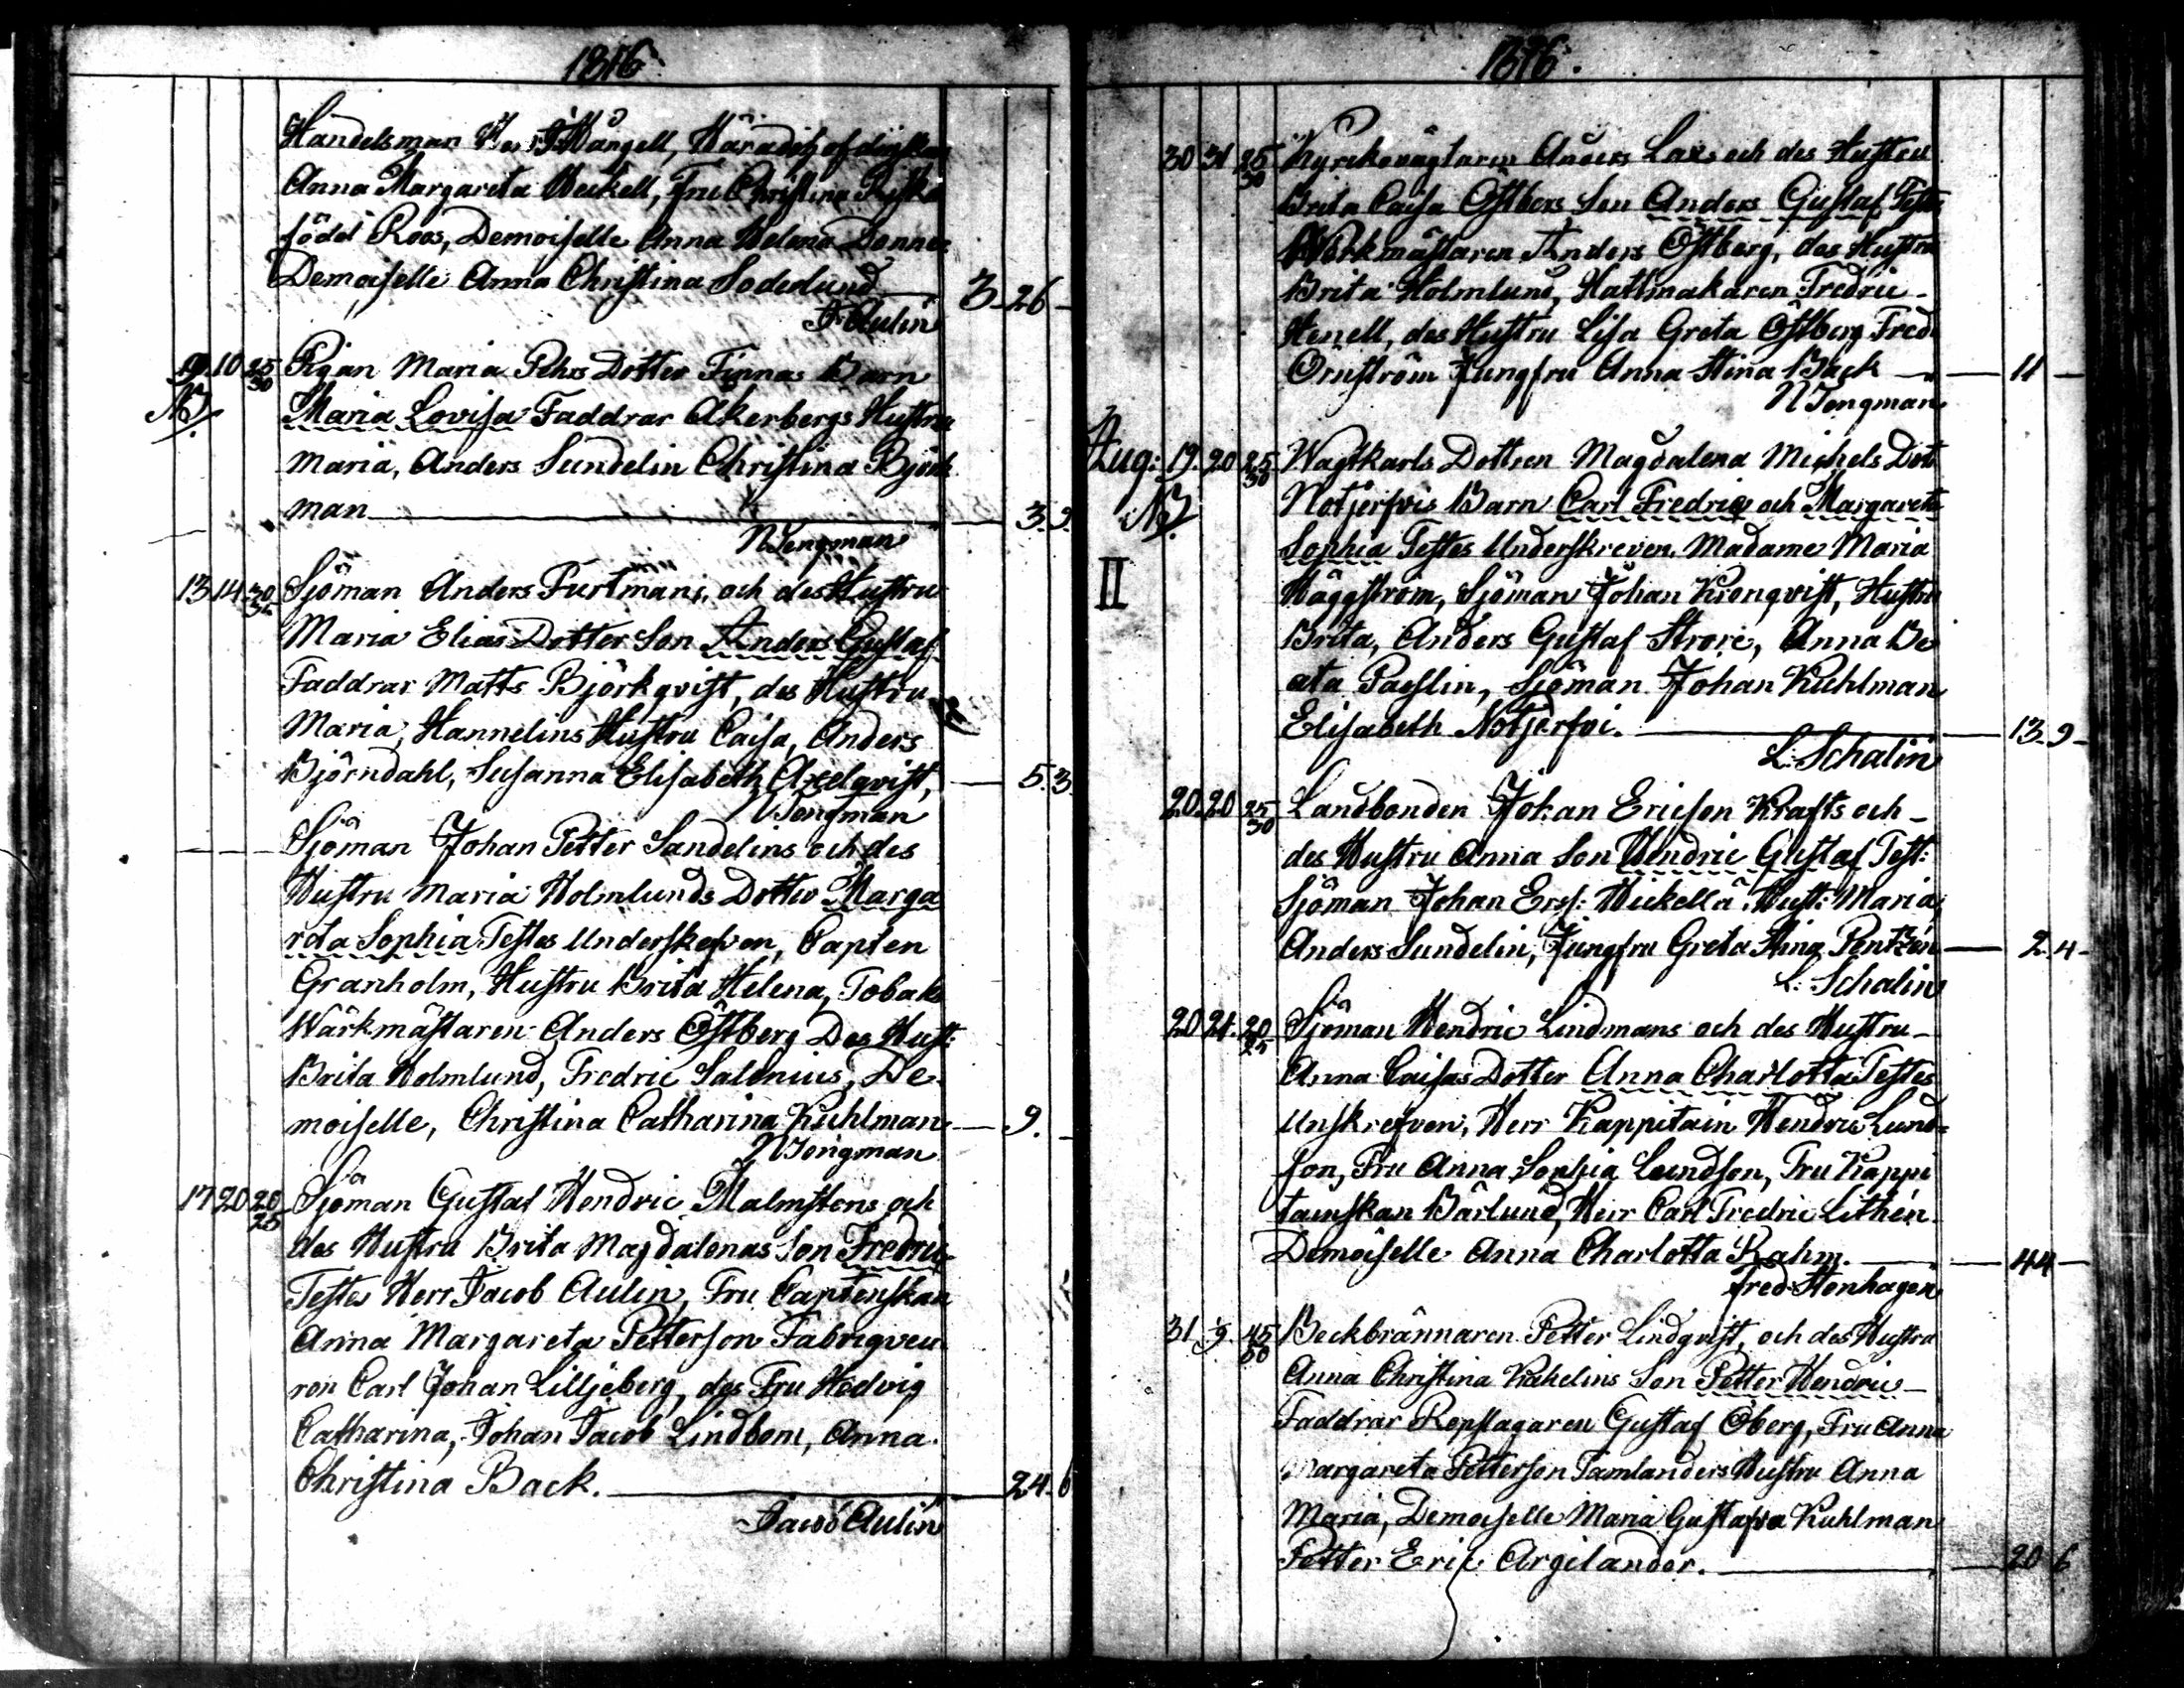 1816
Handelsman Wångell, Häradshöfdingskan
Anna Margareta Heickell, Fru Christina
född Roos, Demoiselle Anna Helena Donner
Demoiselle Anna Christina Soderlund 3 26
Aulin
10 25/30 Pigan Maria Pehrs Dotter Finnas Barn
Maria Lovisa Faddrar Åkerbergs Hustru
Maria, Anders Sundelin Christina Björk
man 3. 9.
N Tengman
13 14 30/35 Sjöman Anders Furtmans, och des Hustru
Maria Elias Dotter Son Anders Gustaf
Faddrar Matts Björkqvist, des Hustru
Maria, Hannelins Hustru Caisa, Anders
Björndahl, Susanna Elisabeth Axelqvist, 5. 3.
N Tengman
Sjöman Johan Petter Sandelins och des
Hustru Maria Holmlunds Dotter Marga
reta Sophia Testes Underskefven, Capten
Granholm, Hustru Brita Helena, Tobaks
Wärkmästaren Anders Östberg Des Hust:
Brita Holmlund, Fredric Salenius, De
moiselle, Christina Catharina Kuhlman 9.
N Tengman
17 20 20/25 Sjöman Gustaf Hendric Malmstens och
des Hustru Brita Magdalenas Son Fredric
Testes Herr Jacob Aulin, Fru Captenskan
Anna Margareta Petterson Fabriqveu
ren Carl Johan Lilljeberg, des Fru Hedvig
Catharina, Johan Jacob Lindbom, Anna
Christina Back. 24. 6
Jacob Aulin
1816.
30 31 25/30 Kyrckovagtaren Anders Lars och des Hustru
Brita Caisa Östbers Son Anders Gustaf Testes
Werkmästaren Anders Östberg, des Hustru
Brita Holmlund, Hattmakaren Fredric
Henell, des Hustru Lisa Greta Östberg Fred
Örnström Jungfru Anna Stina Back 11
N Tengman
Aug: 19. 20 25/30 Wagtkarls Dottren Magdalena Michels Dott
Notjerfvis Barn Carl Fredric och Margareta
Sophia Testes Underskreven Madame Maria
II Häggström, Sjöman Johan Kronqvist, Hustru
Brita, Anders Gustaf Strore, Anna Be
ata Paeslin, Sjöman Johan Kuhlman
Elisabeth Notjerfvi. 13. 9
L. Schalin
20. 20 25/30 Landbonden Johan Ericson Krafts och
des Hustru Anna Son Hendric Gustaf Test:
Sjöman Johan Ersf: Hickella Hust: Maria,
Anders Sundelin, Jungfru Greta Stina Pentzén 2. 4
L: Schalin
20 21. 20/25 Sjöman Hendric Lindmans och des Hustru
Anna Caisas Dotter Anna Charlotta Testes
Unskrefven, Herr Kappitain Hendric Lund=
son, Fru Anna Sophia Lundson, Fru Kappi
tainskan Bärlund, Herr Carl Fredric Lithén
Demoiselle Anna Charlotta Rahm. 44
Fred: Stenhagen
31 45/50 Beckbrännaren Petter Lindqvist, och des Hustru
Anna Christina Kahelins Son Petter Hendric
Faddrar Repslagaren Gustaf Öberg, Fru Anna
Margareta Petterson Tamlanders Hustru Anna
Maria, Demoiselle Maria Gustafva Kuhlman
Petter Eric Argilander. 20 6